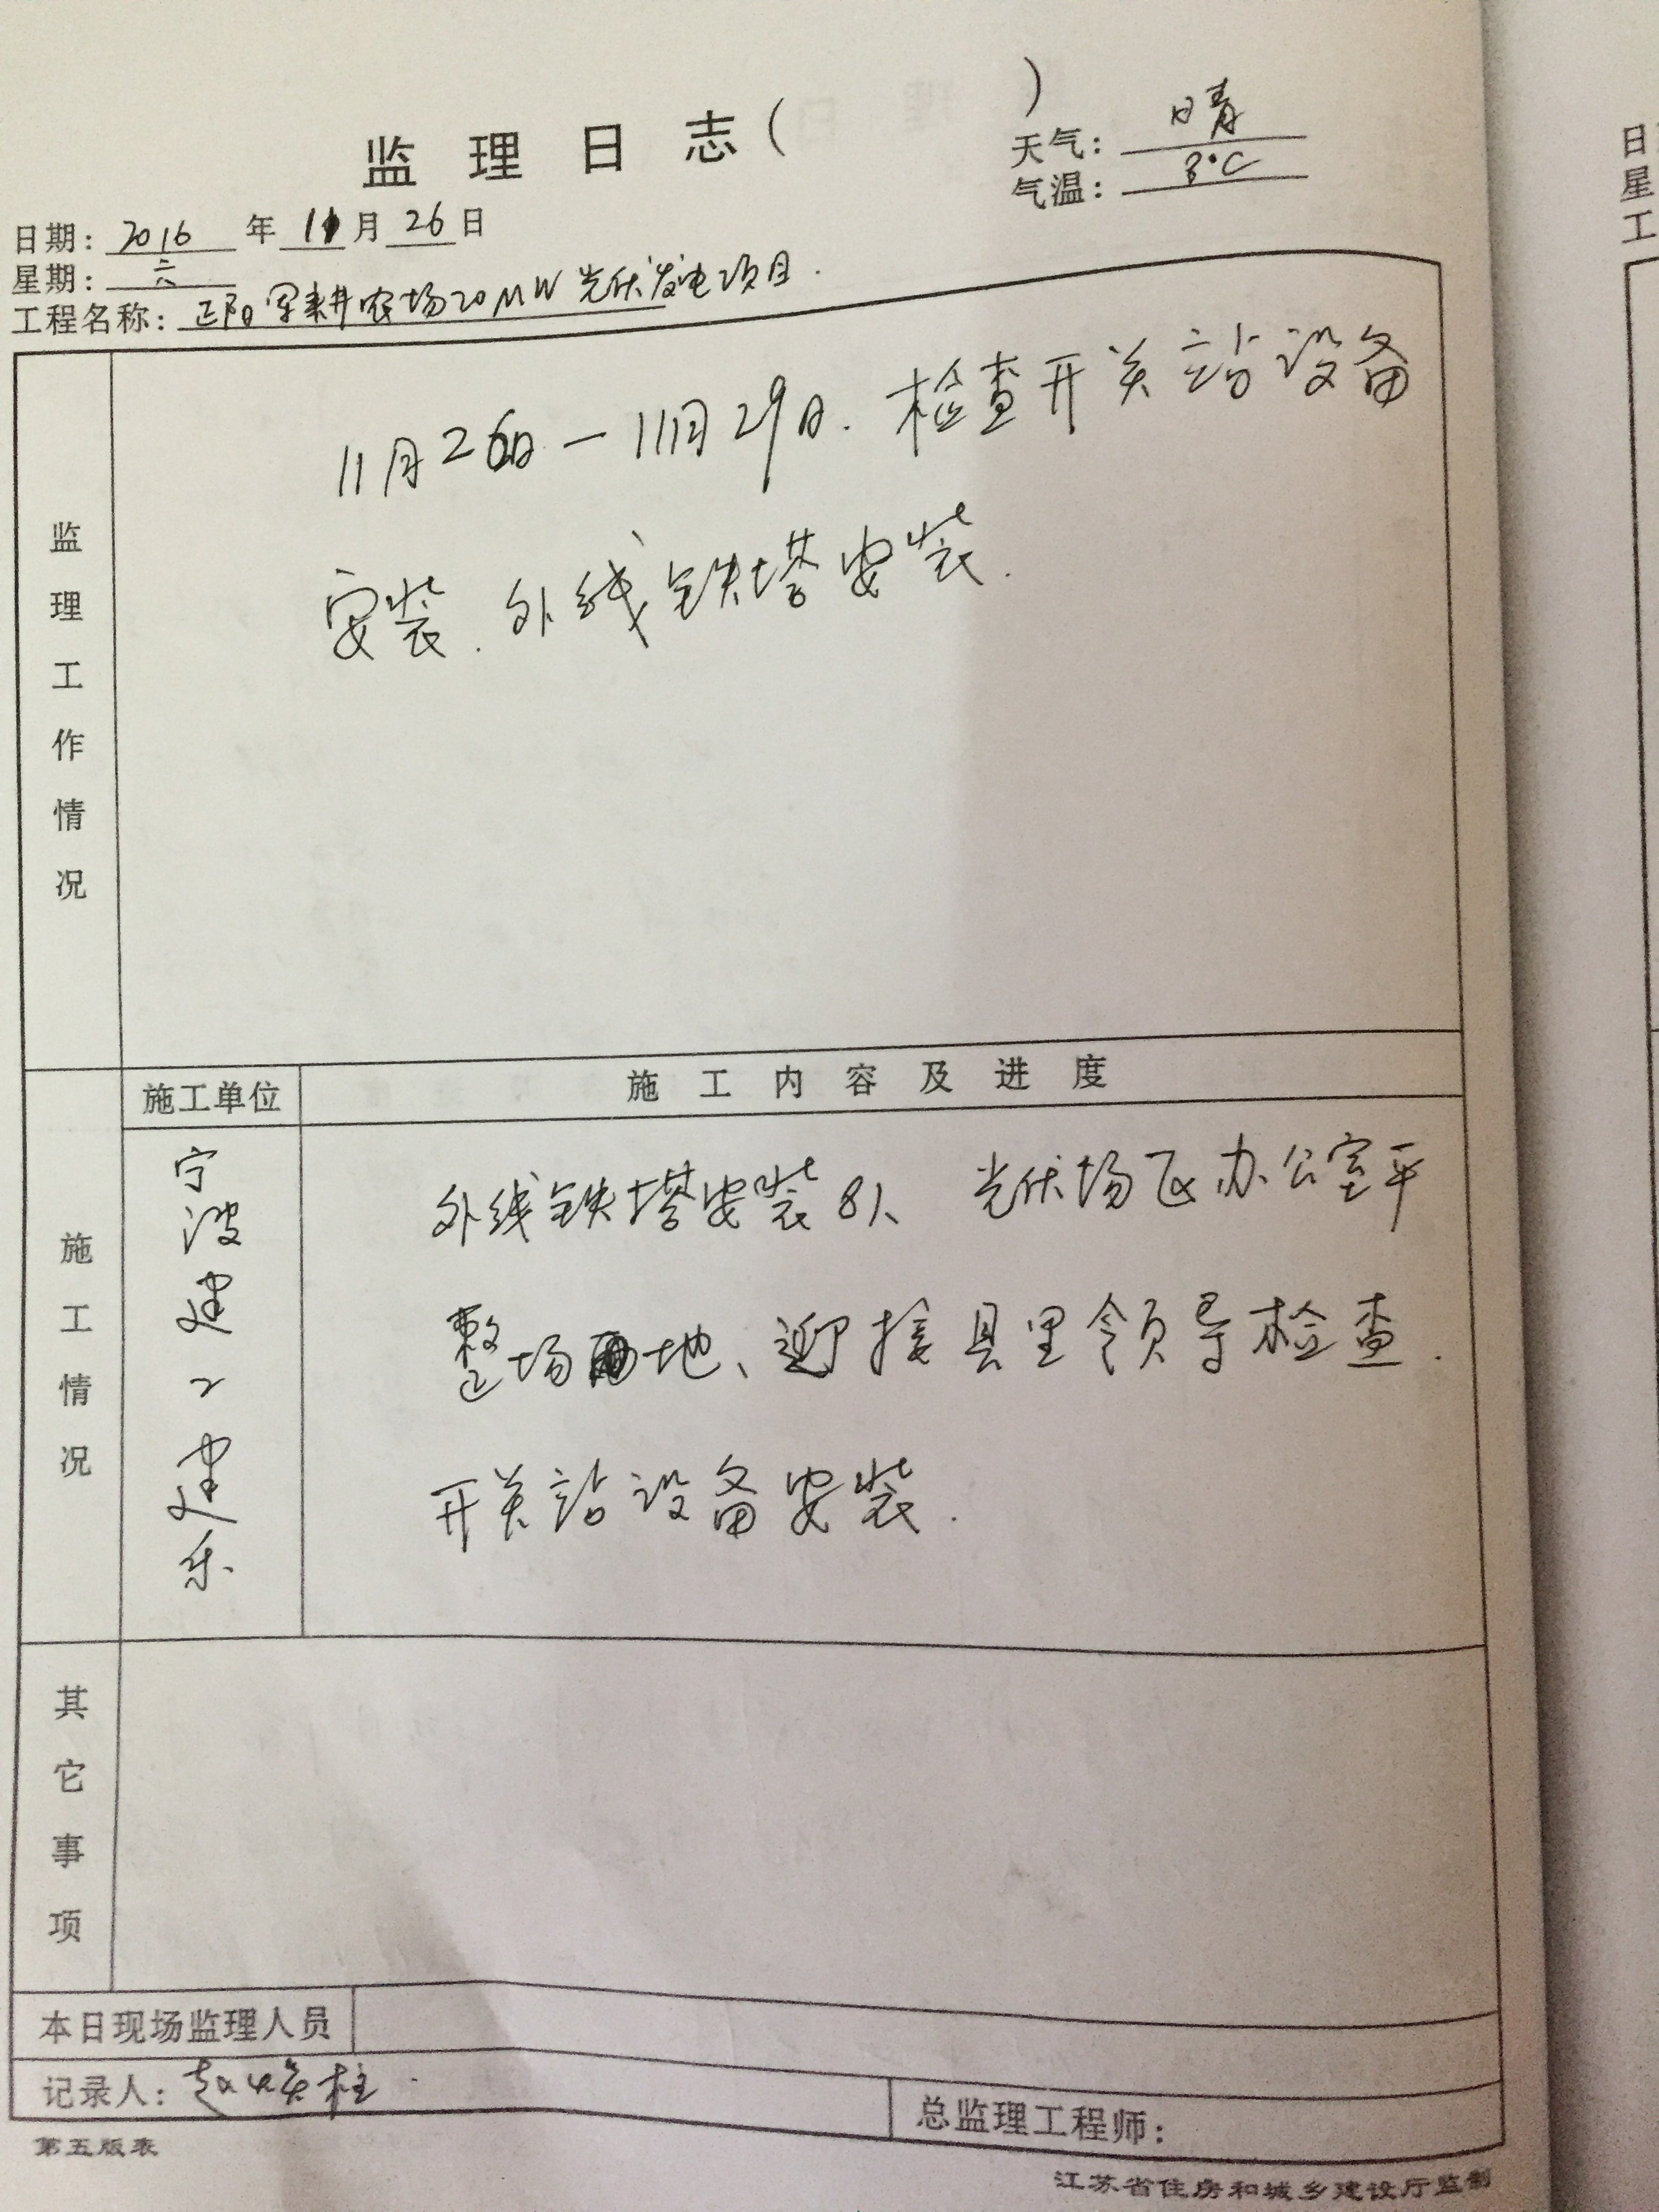 监理日志(　　　)
天气：晴
气温：3°C
日期：2016年11月26日
星期：六
工程名称：正阳军耕农场20MW光伏发电项目.
监理工作情况
11月26日—11月29日.检查开关站设备
安装.外线铁塔安装.
施工单位
施工内容及进度
施工情况
宁波建工建乐
外线铁塔安装8人、光伏场区办公室平
整场地、迎接县里领导检查.
开关站设备安装.
其它事项
本日现场监理人员
记录人：赵焕柱.
总监理工程师：
第五版表
江苏省住房和城乡建设厅监制
日
星
工